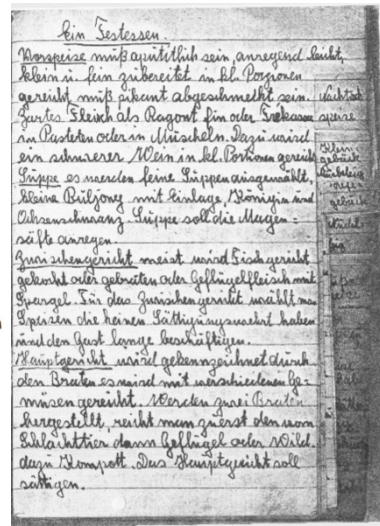 Ein Festessen.
Vorspeise muß apetitlich sein, anregend leicht,
klein u. fein zubereitet in kl. Porzionen
gereicht, muß pikant abgeschmeckt sein.
Zartes Fleisch als Ragout fin oder Frekassee
in Pasteten oder in Muscheln. Dazu wird
ein schwerer Wein in kl. Portionen gereicht
Suppe es werden feine Suppen ausgewählt,
kleine Buljong mit Einlage, Königin und
Ochsenschwanz. Suppe soll die Magen=
säfte anregen.
Zwischengericht meist wird Fischgericht
gekocht oder gebraten oder Geflügelfleisch mit
Spargel. Für das Zwischengericht wählt man
Speisen die keinen Sättigungswehrt haben
und den Gast lange beschäftigen.
Hauptgericht wird gekennzeichnet durch
den Braten es wird mit verschiedenen Ge=
müsen gereicht. Werden zwei Braten
hergestellt, reicht man zuerst den vom
Schlachttier dann Geflügel oder Wild.
dazu Kompott. Das Hauptgericht soll
sättigen.
Nachtisch
speise
Klein
gebäck
gebäck